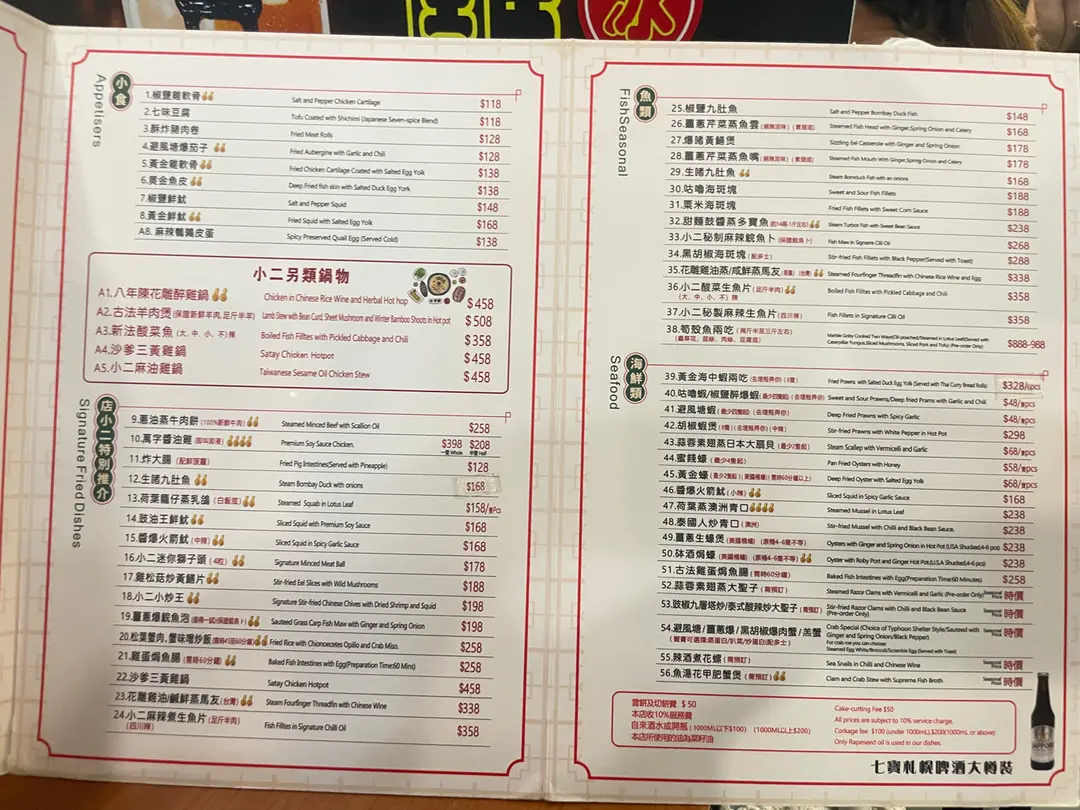 小食
Appetisers
1.椒鹽雞軟骨 Salt and Pepper Chicken Cartilage $118
2.七味豆腐 Tofu Coated with Shichimi (Japanese Seven-spice Blend) $118
3.酥炸豬肉卷 Fried Meat Rolls $128
4.避風塘爆茄子 Fried Aubergine with Garlic and Chili $128
5.黃金雞軟骨 Fried Chicken Cartilage Coated with Salted Egg Yolk $138
6.黃金魚皮 Deep Fried fish skin with Salted Duck Egg York $138
7.椒鹽鮮魷 Salt and Pepper Squid $148
8.黃金鮮魷 Fried Squid with Salted Egg Yolk $168
A8. 麻辣鵪鶉皮蛋 Spicy Preserved Quail Egg (Served Cold) $138
小二另類鍋物
A1.八年陳花雕醉雞鍋 Chicken in Chinese Rice Wine and Herbal Hot hop $458
A2.古法羊肉煲(保證新鮮羊肉,足斤半羊) Lamb Stew with Bean Curd, Sheet Mushroom and Winter Bamboo Shoots in Hot pot $508
A3.新法酸菜魚 (大, 中, 小, 不) 辣 Boiled Fish Filltes with Pickled Cabbage and Chili $358
A4.沙爹三黃雞鍋 Satay Chicken Hotpot $458
A5.小二麻油雞鍋 Taiwanese Sesame Oil Chicken Stew $458
店小二特別推介
Signature Fried Dishes
9.蔥油蒸牛肉餅 (100%新鮮牛肉) Steamed Minced Beef with Scallion Oil $258
10.萬字醬油雞 (即叫即浸) Premium Soy Sauce Chicken. $398 一隻 Whole $208 半隻 Half
11.炸大腸 (配鮮菠蘿) Fried Pig Intestines(Served with Pineapple) $128
12.生啫九肚魚 Steam Bombay Duck with onions $168
13.荷葉籠仔蒸乳鴿 (白飯底) Steamed Squab in Lotus Leaf $158/隻Pcs
14.豉油王鮮魷 Sliced Squid with Premium Soy Sauce $168
15.醬爆火箭魷 (中辣) Sliced Squid in Spicy Garlic Sauce $168
16.小二迷你獅子頭 (4粒) Signature Minced Meat Ball $178
17.雞松菇炒黃鱔片 Stir-fried Eel Slices with Wild Mushrooms $188
18.小二小炒王 Signature Stir-fried Chinese Chives with Dried Shrimp and Squid $198
19.薑蔥爆鯇魚泡 (值得一試)(保證鯇魚卜) Sauteed Grass Carp Fish Maw with Ginger and Spring Onion $198
20.松葉蟹肉,蟹味噌炒飯(需時45至60分鐘) Fried Rice with Chionoecetes Opilio and Crab Miso. $258
21.雞蛋焗魚腸 (需時60分鐘) Baked Fish Intestines with Egg(Preparation Time:60 Mins) $258
22.沙爹三黃雞鍋 Satay Chicken Hotpot $458
23.花雕雞油/鹹鮮蒸馬友 (台灣) Steam Fourfinger Threadfin with Chinese Wine $338
24.小二麻辣煮生魚片 (足斤半肉) Fish Filltes in Signature Chilli Oil $358
(四川辣)
魚類
FishSeasonal
25.椒鹽九肚魚 Salt and Pepper Bombay Duck Fish $148
26.薑蔥芹菜蒸魚雲 (絕無泥味) (素翅底) Steamed Fish Head with Ginger,Spring Onion and Celery $168
27.爆啫黃鱔煲 Sizzling Eel Casserole with Ginger and Spring Onion $178
28.薑蔥芹菜蒸魚嘴 (絕無泥味) (素翅底) Steamed Fish Mouth With Ginger,Spring Onion and Celery $178
29.生啫九肚魚 Steam Bomduck Fish with an onions $168
30.咕嚕海斑塊 Sweet and Sour Fish Fillets $188
31.粟米海斑塊 Fried Fish Fillets with Sweet Corn Sauce $188
32.甜麵豉醬蒸多寶魚(約14兩-1斤左右) Steam Turbot Fish with Sweet Bean Sauce $238
33.小二秘制麻辣鯇魚卜 (保證鯇魚卜) Fish Maw in Signatre Cilli Oil $268
34.黑胡椒海斑塊 (配多士) Stir-fried Fish Fillets with Black Pepper(Served with Toast) $288
35.花雕雞油蒸/咸鮮蒸馬友 (限量) (台灣) Steamed Fourfinger Threadfin with Chinese Rice Wine and Egg $338
36.小二酸菜生魚片 (足斤半肉) Boiled Fish Filltes with Pickled Cabbage and Chili $358
(大, 中, 小, 不) 辣
37.小二秘製麻辣生魚片 (四川辣) Fish Fillets in Signature Cilli Oil $358
38.筍殼魚兩吃 (兩斤半至三斤左右) Marble Goby Cooked Two Ways(Oil-poached/Steamed in Lotus Leaf)(Served with $888-988
(蟲草花, 菇絲, 肉絲, 豆腐底) Caterpillar Fungus,Sliced Mushrooms, Sliced Pork and Tofu) (Pre-order Only)
海鮮類
Seafood
39.黃金海中蝦兩吃 (去埋殼畀你) (6隻) Fried Prawns with Salted Duck Egg Yolk (Served with Thai Curry Bread Rolls) $328/6pcs
40.咕嚕蝦/椒鹽醉爆蝦(最少四隻起) (去埋殼畀你) Sweet and Sour Prawns/Deep fried Prams with Garlic and Chilli $48/隻pcs
41.避風塘蝦 (最少四隻起) (去埋殼畀你) Deep Fried Prawns with Spicy Garlic $48/隻pcs
42.胡椒蝦煲 (8隻) (去埋殼畀你) (中辣) Stir-fried Prawns with White Pepper in Hot Pot $298
43.蒜蓉素翅蒸日本大扇貝 (最少2隻起) Steam Scallep with Vermicelli and Garlic $68/隻pcs
44.蜜餞蠔 (最少4隻起) Pan Fried Oysters with Honey $58/隻pcs
45.黃金蠔 (最少2隻起) (美國桶蠔) (需時60分鐘以上) Deep Fried Oyster with Salted Egg Yolk $68/隻pcs
46.醬爆火箭魷 (小辣) Sliced Squid in Spicy Garlic Sauce $168
47.荷葉蒸澳洲青口 Steamed Mussel in Lotus Leaf $238
48.泰國人炒青口 (澳洲) Stir-fried Mussel with Chilli and Black Bean Sauce. $238
49.薑蔥生蠔煲 (美國桶蠔) (原桶4-6隻不等) Oysters with Ginger and Spring Onion in Hot Pot (USA Shucked,4-6 pcs) $238
50.砵酒焗蠔 (美國桶蠔) (原桶4-6隻不等) Oyster with Roby Port and Ginger Hot Pot,(U.S.A Shucked,4-6 pcs) $238
51.古法雞蛋焗魚腸 (需時60分鐘) Baked Fish Intestines with Egg(Preparation Time:60 Minutes) $258
52.蒜蓉素翅蒸大聖子 (需預訂) Steamed Razor Clams with Vermicelli and Garlic (Pre-order Only) Seasonal Price 時價
53.豉椒九層塔炒/泰式酸辣炒大聖子 (需預訂) Stir-fried Razor Clams with Chilli and Black Bean Sauce Seasonal Price 時價
(Pre-order Only)
54.避風塘/薑蔥爆/黑胡椒爆肉蟹/羔蟹 Crab Special (Choice of Typhoon Shelter Style/Sauteed with Seasonal Price 時價
(蟹膏可選擇:蒸蛋白/扒菜/炒蛋白(配多士) Ginger and Spring Onion/Black Pepper)
For crab roe you can choose:
Steamed Egg White/Broccoli/Scramble Egg (Served with Toast)
55.辣酒煮花螺 (需預訂) Sea Snails in Chilli and Chinese Wine Seasonal Price 時價
56.魚湯花甲肥蟹煲 (需預訂) Clam and Crab Stew with Supreme Fish Broth Seasonal Price 時價
當餅及切餅費 $ 50 Cake-cutting Fee $50
本店收10%服務費 All prices are subject to 10% service charge.
自來酒水或開瓶 (1000ML以下$100) (1000ML以上$200) Corkage fee $100 (under 1000mL),$200(1000mL or above)
本店所使用的油為菜籽油 Only Rapeseed oil is used in our dishes.
七寶札幌啤酒大樽裝
SAPPORO